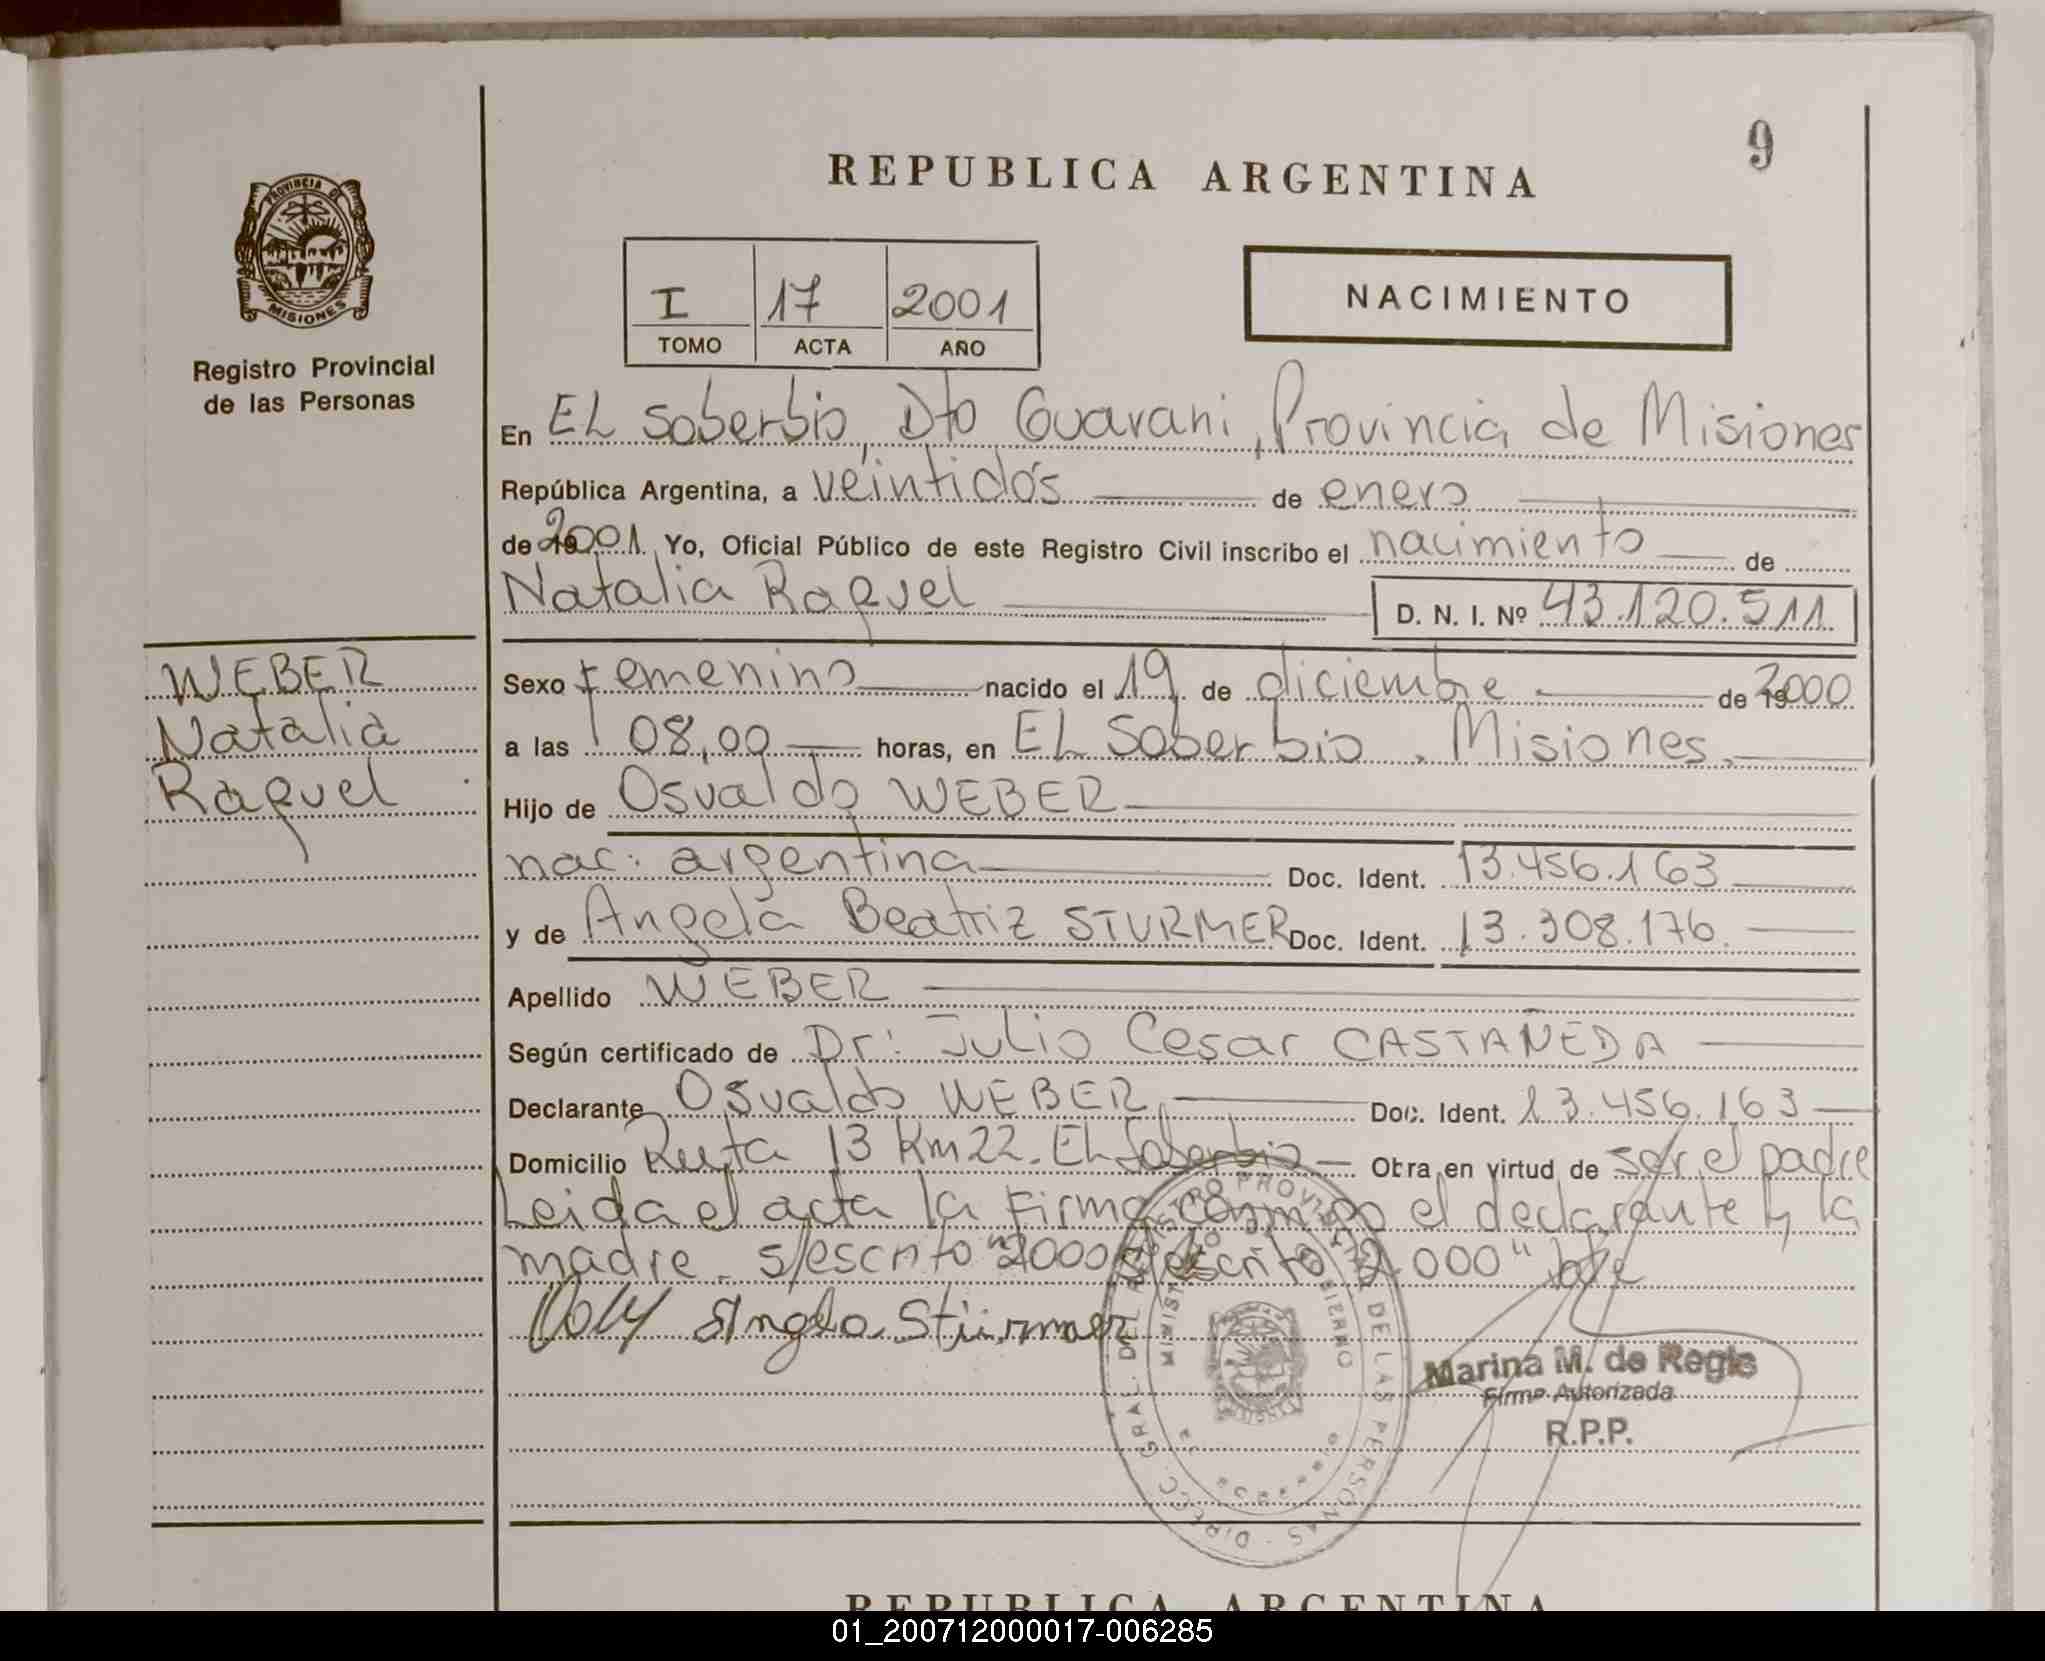 9
REPUBLICA ARGENTINA
PROVINCIA DE
MISIONES
Registro Provincial
de las Personas
I 17 2001
TOMO ACTA AÑO
NACIMIENTO
En EL Soberbio, Dto Guarani, Provincia de Misiones
República Argentina, a veintidós de enero
de 2001 Yo, Oficial Público de este Registro Civil inscribo el nacimiento de
Natalia Raquel D. N. I. Nº 43.120.511
WEBER
Natalia
Raquel
Sexo Femenino nacido el 19 de diciembre de 2000
a las 08,00 horas, en EL Soberbio, Misiones,
Hijo de Osvaldo WEBER
nac: argentina Doc. Ident. 13.456.163
y de Angela Beatriz STURMER Doc. Ident. 13.308.176
Apellido WEBER
Según certificado de Dr: Julio Cesar CASTAÑEDA
Declarante Osvaldo WEBER Doc. Ident. 13.456.163
Domicilio Ruta 13 Km 22. EL Soberbio Obra en virtud de ser el padre
Leida el acta la firma conmigo el declarante y la
madre. s/escrito "2000" s/escrito "2000" Vale
Angela Stürmer
DIRECC. GRAL. DEL REGISTRO PROVINCIAL DE LAS PERSONAS
MINISTERIO DE GOBIERNO
Marina M. de Regis
Firma Autorizada
R.P.P.
REPUBLICA ARGENTINA
01_200712000017-006285